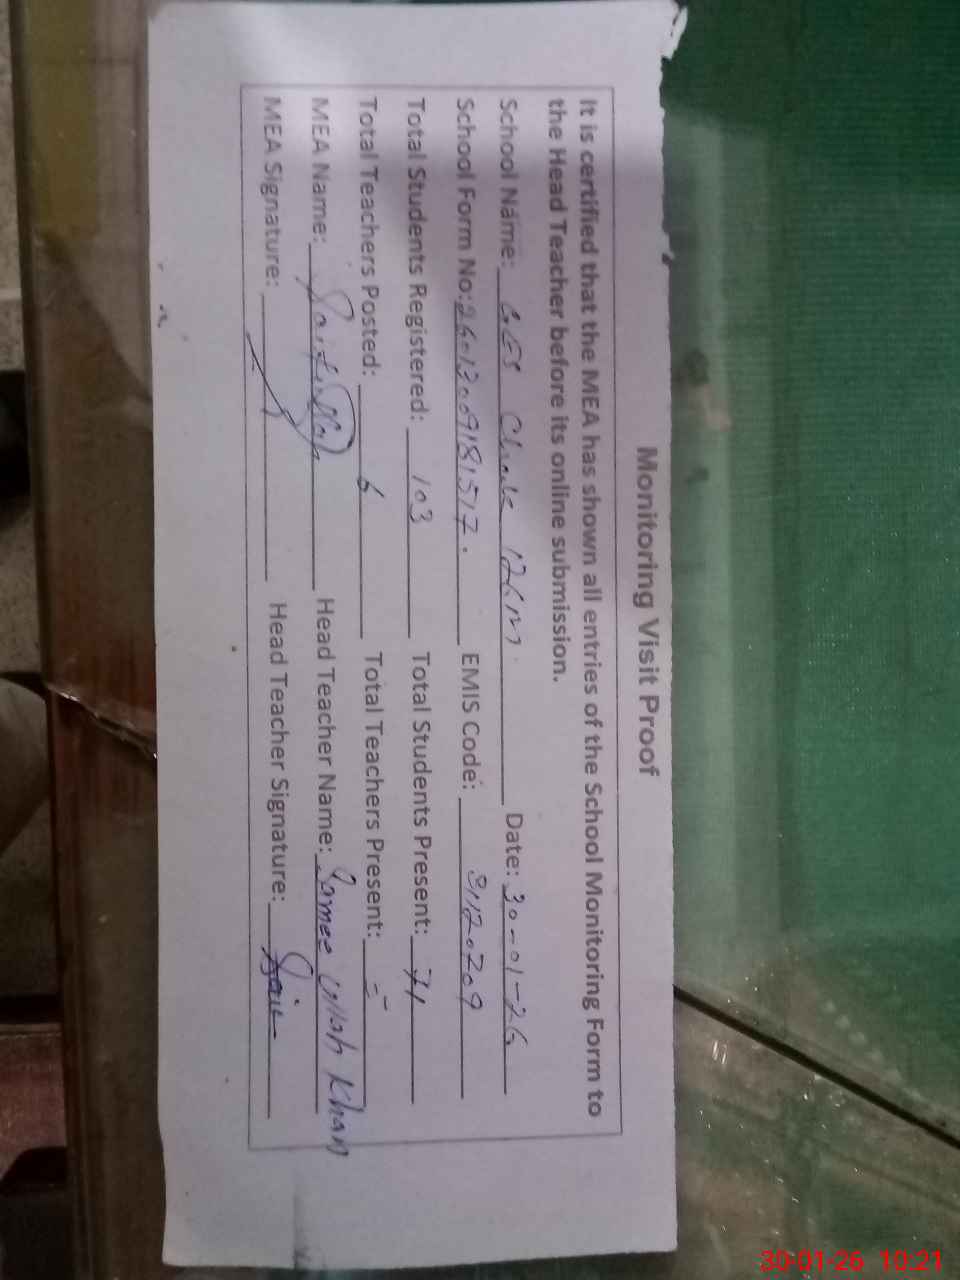 Monitoring Visit Proof
It is certified that the MEA has shown all entries of the School Monitoring Form to
the Head Teacher before its online submission.
School Name: GES Chak 126 Date: 30-01-26
School Form No: EMIS Code:
Total Students Registered: 103 Total Students Present: 71
Total Teachers Posted: 6 Total Teachers Present:
MEA Name: Head Teacher Name: Samee Ullah Khan
MEA Signature: Head Teacher Signature:
30-01-26 10:21